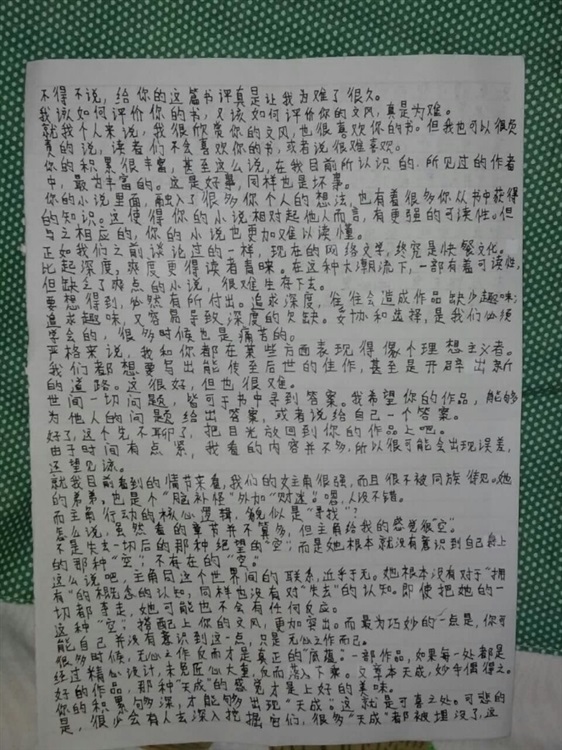 不得不说，给你的这篇书评真是让我为难了很久。
我该如何评价你的书，又该如何评价你的文风，真是为难。
就我个人来说，我很欣赏你的文风，也很喜欢你的书。但我也可以很负
责的说，读者们不会喜欢你的书，或者说很难喜欢。
你的积累很丰富，甚至这么说，在我目前所认识的、所见过的作者
中，最为丰富的。这是好事，同样也是坏事。
你的小说里面，融入了很多你个人的想法，也有着很多你从书中获得
的知识。这使得你的小说相对起他人而言，有更强的可读性。但
与之相应的，你的小说也更加难以读懂。
正如我们之前谈论过的一样，现在的网络文学，终究是快餐文化。
比起深度，爽度更得读者青睐。在这种大潮流下，一部有着可读性，
但缺乏了爽点的小说，很难生存下去。
要想得到，必然有所付出。追求深度，往往会造成作品缺少趣味；
追求趣味，又容易导致深度的欠缺。妥协和选择，是我们必须
学会的，很多时候也是痛苦的。
严格来说，我和你都在某些方面表现得像个理想主义者。
我们都想要写出能传至后世的佳作，甚至是开辟出新
的道路。这很好，但也很难。
世间一切问题，皆可于书中寻到答案。我希望你的作品，能够
为他人的问题给出答案，或者说给自己一个答案。
好了，这个先不聊了，把目光放回到你的作品上吧。
由于时间有点紧，我看的内容并不多，所以很可能会出现误差，
还望见谅。
就我目前看到的情节来看，我们的女主角很强，而且很不被同族待见。她
的弟弟，也是个“脑补怪”外加“财迷”。嗯，人设不错。
而主角行动的核心逻辑，貌似是“寻找”？
怎么说，虽然看的章节并不算多，但主角给我的感觉很“空”。
不是失去一切后的那种绝望的“空”，而是她根本就没有意识到自己身上
的那种“空”，不存在的“空”。
这么说吧，主角与这个世界间的联系，近乎于无。她根本没有对于“拥
有”的概念的认知，同样也没有对“失去”的认知。即使把她的一
切都夺走，她可能也不会有任何反应。
这种“空”，搭配上你的文风，更加突出。而最为巧妙的一点是，你可
能自己并没有意识到这一点，只是无心之作而已。
很多时候，无心之作反而才是真正的“底蕴”。一部作品，如果每一处都是
经过精心设计，未免匠心太重，反而落入下乘。文章本天成，妙手偶得之。
好的作品，那种“天成”的感觉才是上好的美味。
你的积累够深，才能够出现“天成”。这就是可喜之处。可悲的
是，很少会有人去深入挖掘它们，很多“天成”都被埋没了，这